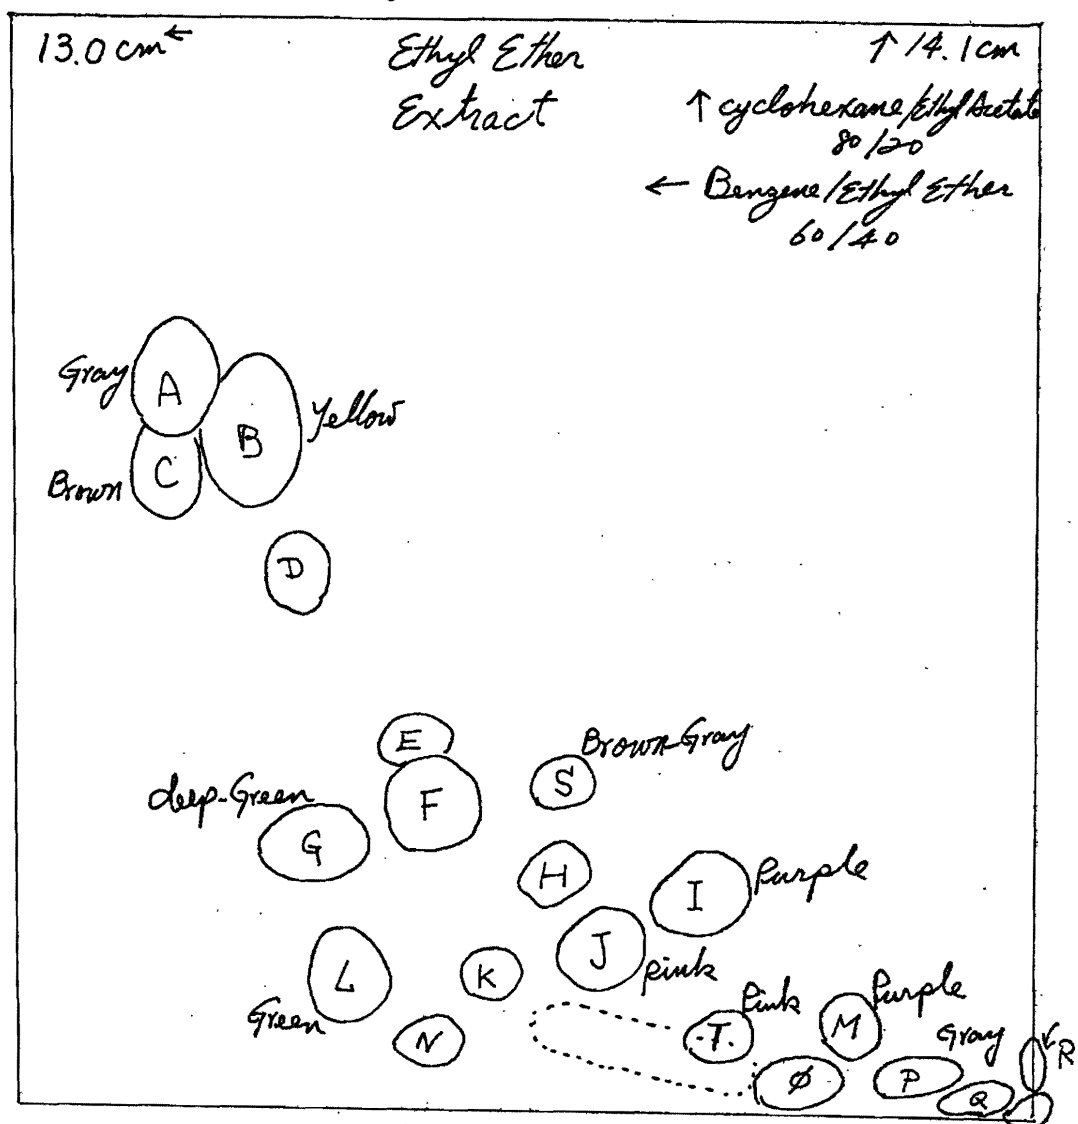 13.0 cm ←
Ethyl Ether
Extract
↑ 14.1 cm
↑ cyclohexane/Ethyl Acetate
80/20
← Benzene/Ethyl Ether
60/40
Gray
A
B
Yellow
Brown
C
D
E
Brown-Gray
S
deep-Green
F
G
H
I
Purple
J
Pink
L
K
Green
N
Pink
T.
Purple
M
Gray
R
Ø
P
Q